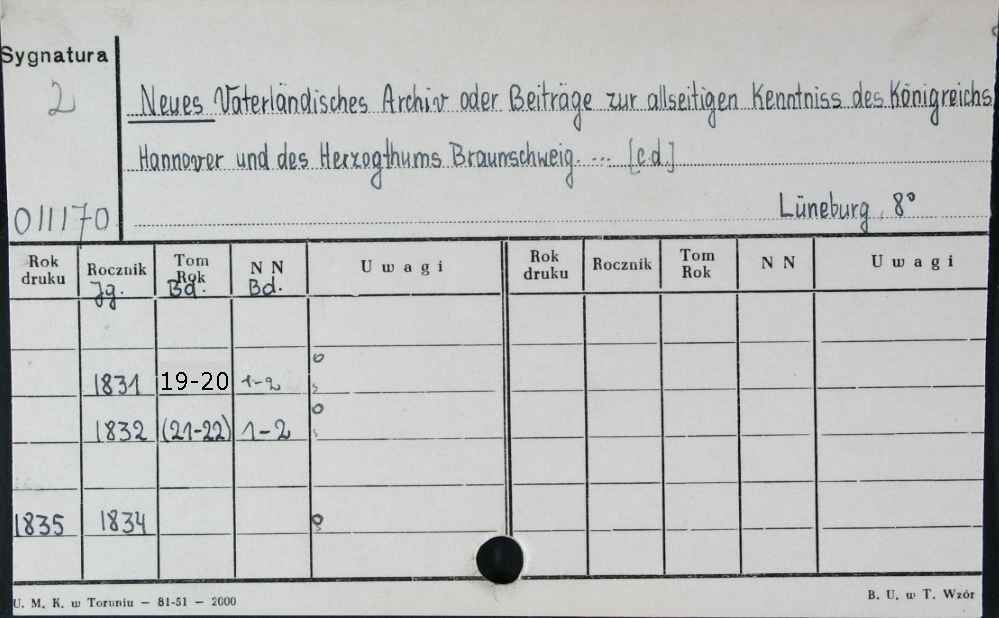 Sygnatura
2
Neues Vaterländisches Archiv oder Beiträge zur allseitigen Kenntniss des Königreichs
Hannover und des Herzogthums Braunschweig. ... [c.d.]
011170
Lüneburg, 8°
Rok druku Rocznik Tom Rok N N Uwagi Rok druku Rocznik Tom Rok N N Uwagi
Jg. Bd. Bd.
1831 19-20 1-2
1832 (21-22) 1-2
1835 1834
U. M. K. w Toruniu — 81-51 — 2000
B. U. w T. Wzór